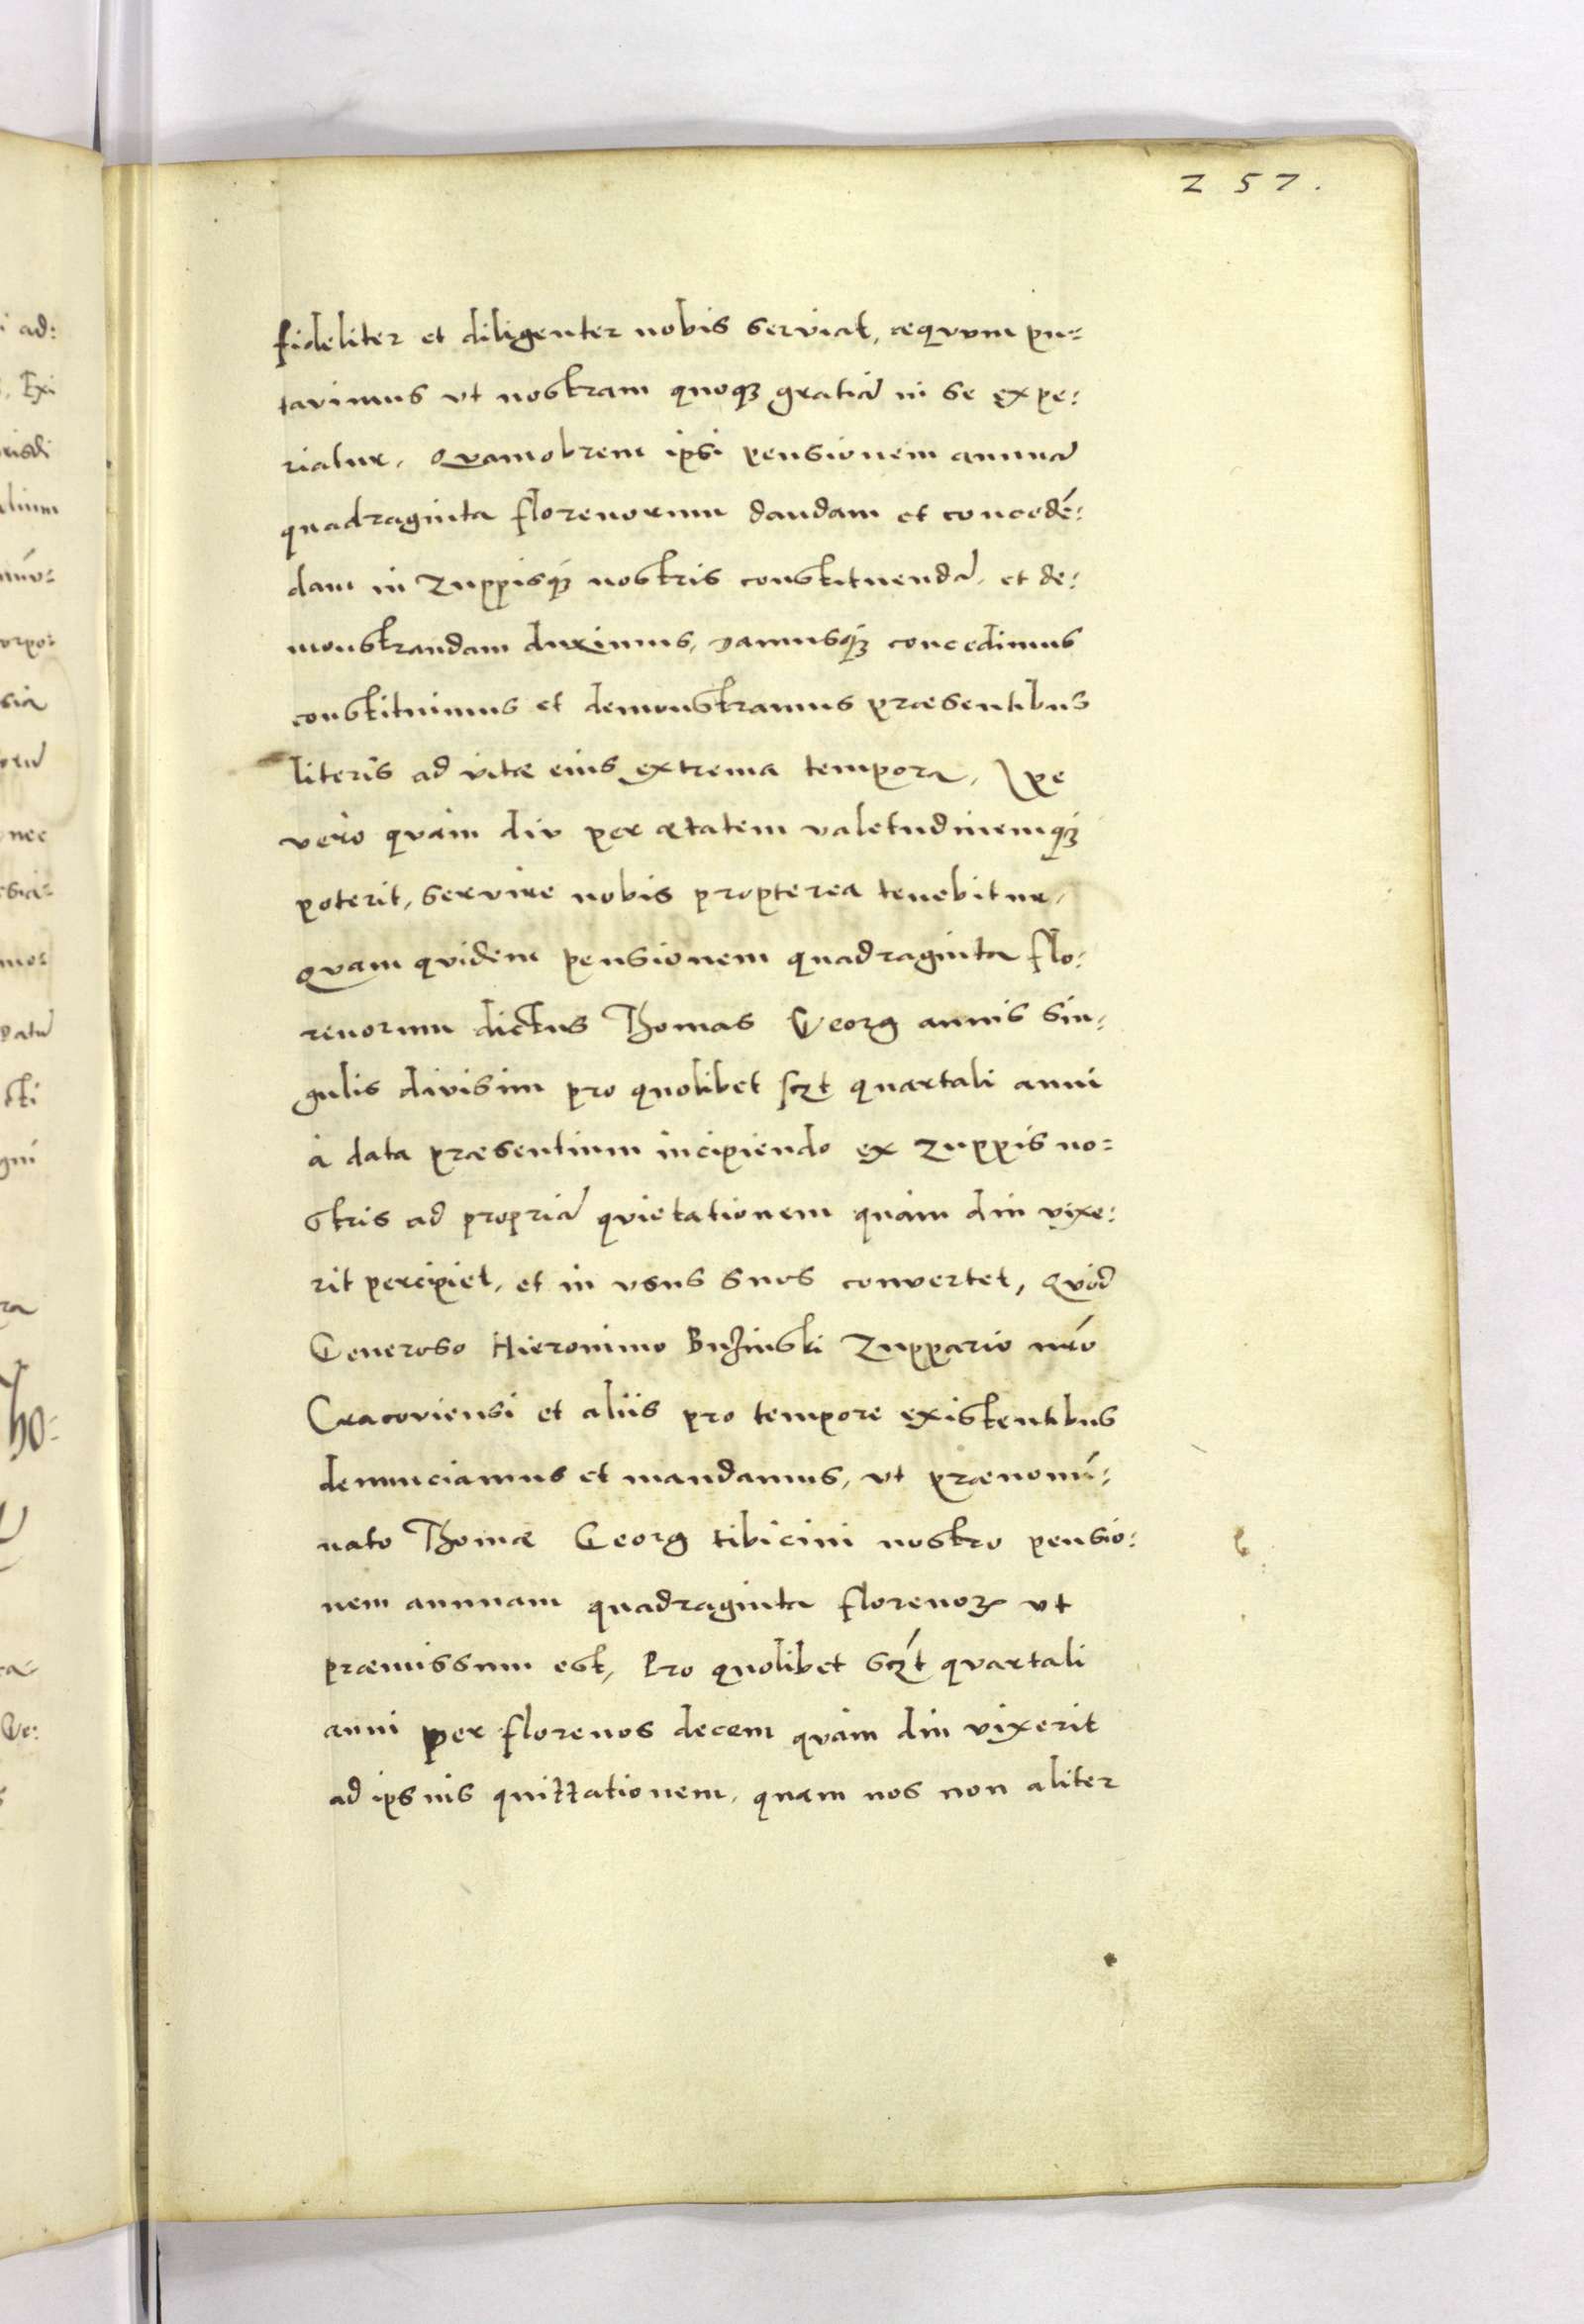 257.
fideliter et diligenter nobis serviat, æqvum pu=
tavimus vt nostram quoqȝ gratiā in se expe:
riatur. Qvamobrem ipsi pensionem annuā
quadraginta florenorum dandam et concedē:
dam in Zuppisqȝ nostris constituendā, et de:
monstrandam duximus, damusqȝ concedimus
constituimus et demonstramus præsentibus
literis ad vitæ eius extrema tempora, Ipe
vero quàm div per ætatem valetudinemqȝ
poterit, servire nobis propterea tenebitur,
Qvam qvidem pensionem quadraginta flo:
renorum dictus Thomas Georg annis sin:
gulis divisim pro quolibet sczt quartali anni
à data præsentium incipiendo ex zuppis no=
stris ad propriā qvietationem quàm diu vixe:
rit percipiet, et in vsus suos convertet, Qvod
Generoso Hieronimo Buzinski Zuppario nr̄o
Cracoviensi et aliis pro tempore existentibus
denunciamus et mandamus, vt prænomī:
nato Thomæ Georg tibicini nostro pensio:
nem annuam quadraginta florenoꝝ vt
præmissum est, Pro quolibet sczt quartali
anni per florenos decem qvàm diu vixerit
ad ipsius quittationem, quam nos non aliter